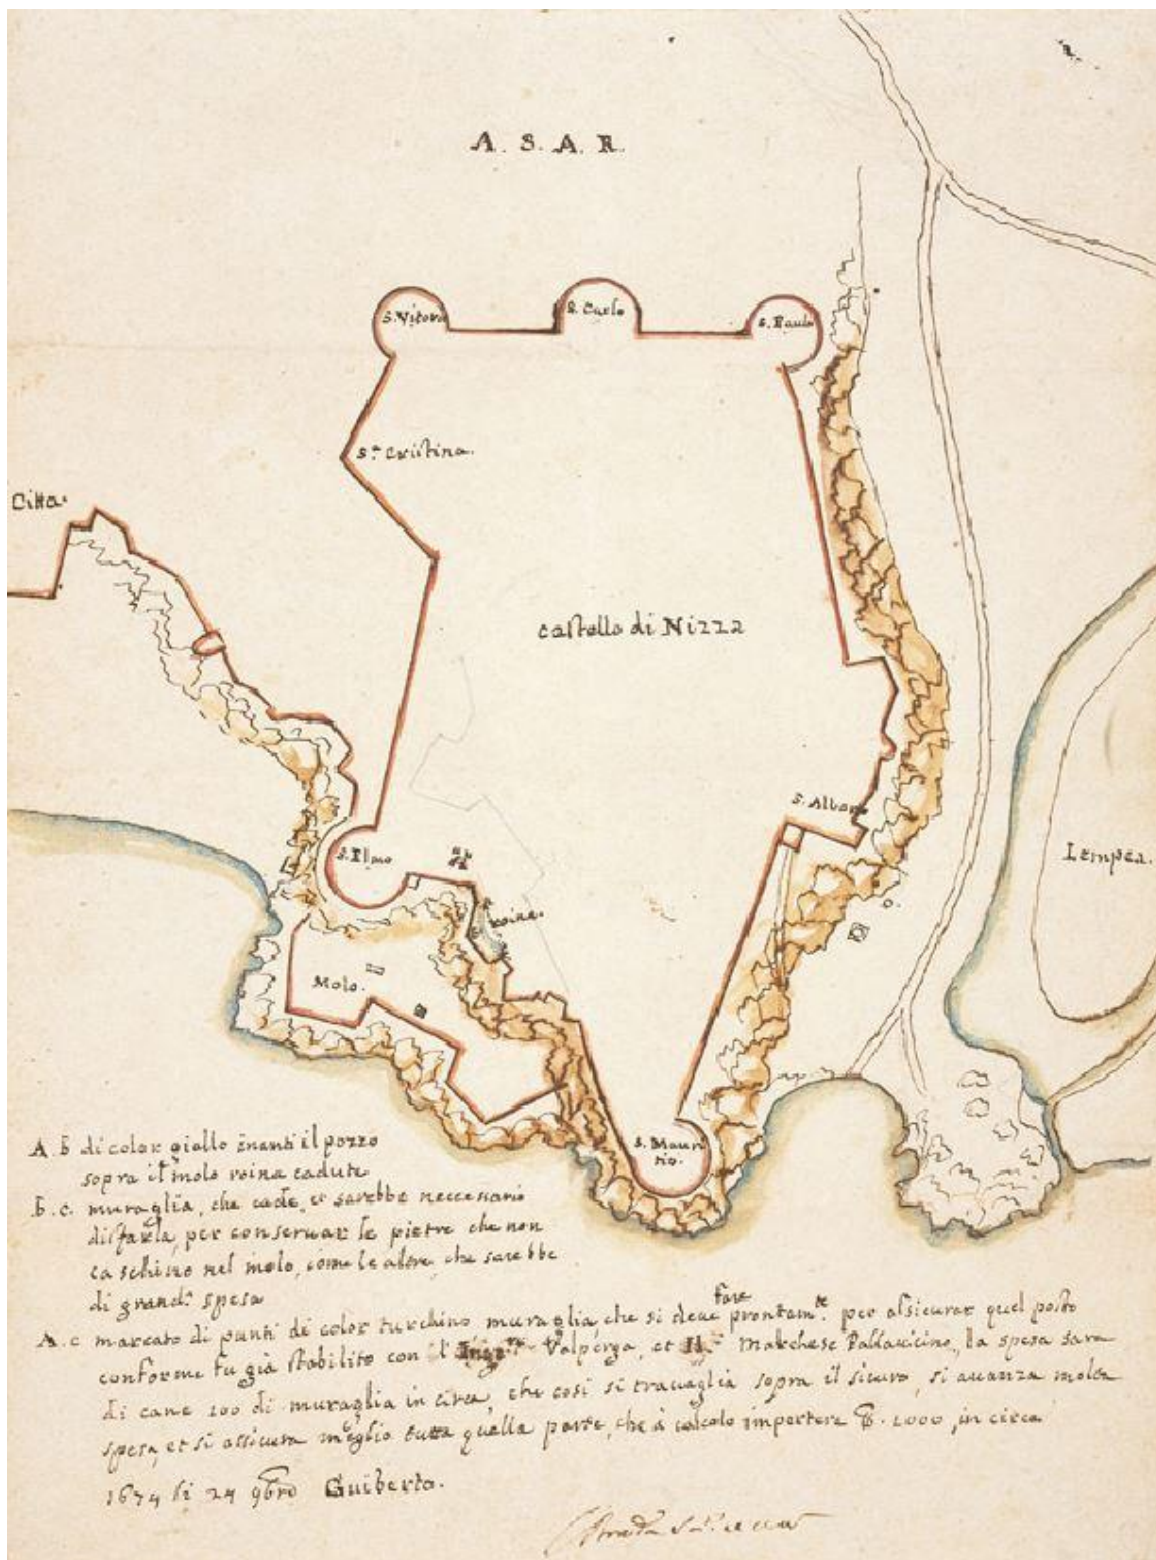 A. S. A. R.
S. Vitorio
S. Carlo
S. Paulo
S.ª Cristina.
Citta.
Castello di Nizza
S. Albano
Lempea.
S. Elmo
roina.
Molo.
S. Mauri
tio.
A. b di color giallo inanti il pozzo
sopra il molo roina cadute
b. c. muraglia, che cade, et sarebbe neccessario
disfarla, per conservar le pietre che non
caschino nel molo, come le altre, che sarebbe
di grand.ª spesa
A. c marcato di punti di color turchino muraglia, che si deve fare prontam.te per assicurar quel posto
conforme fu già stabilito con l' Ingo.re Valperga, et Il. Marchese Pallavicino, la spesa sara
di cane 100 di muraglia in circa, che così si travaglia sopra il sicuro, si avanza molta
spesa, et si assicura meglio tutta quella parte, che à calcolo importera 1000, in circa
1674 li 24 9bro Guiberto.